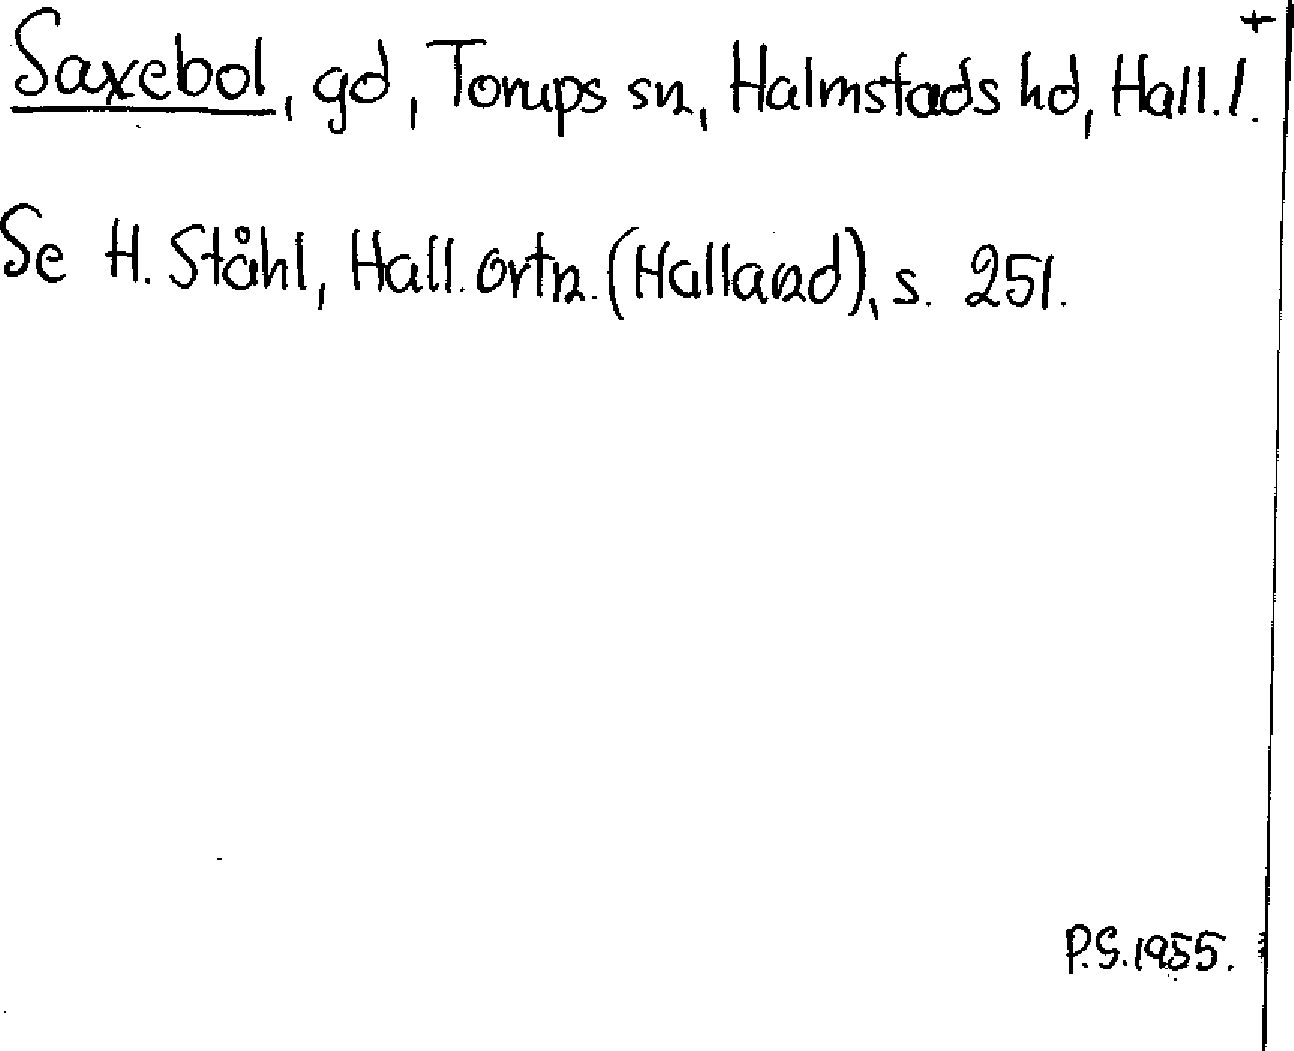 +
Saxebol, gd, Torups sn, Halmstads hd, Hall. l.
Se H. Ståhl, Hall. ortn. (Halland), s. 251.
P.S. 1955.